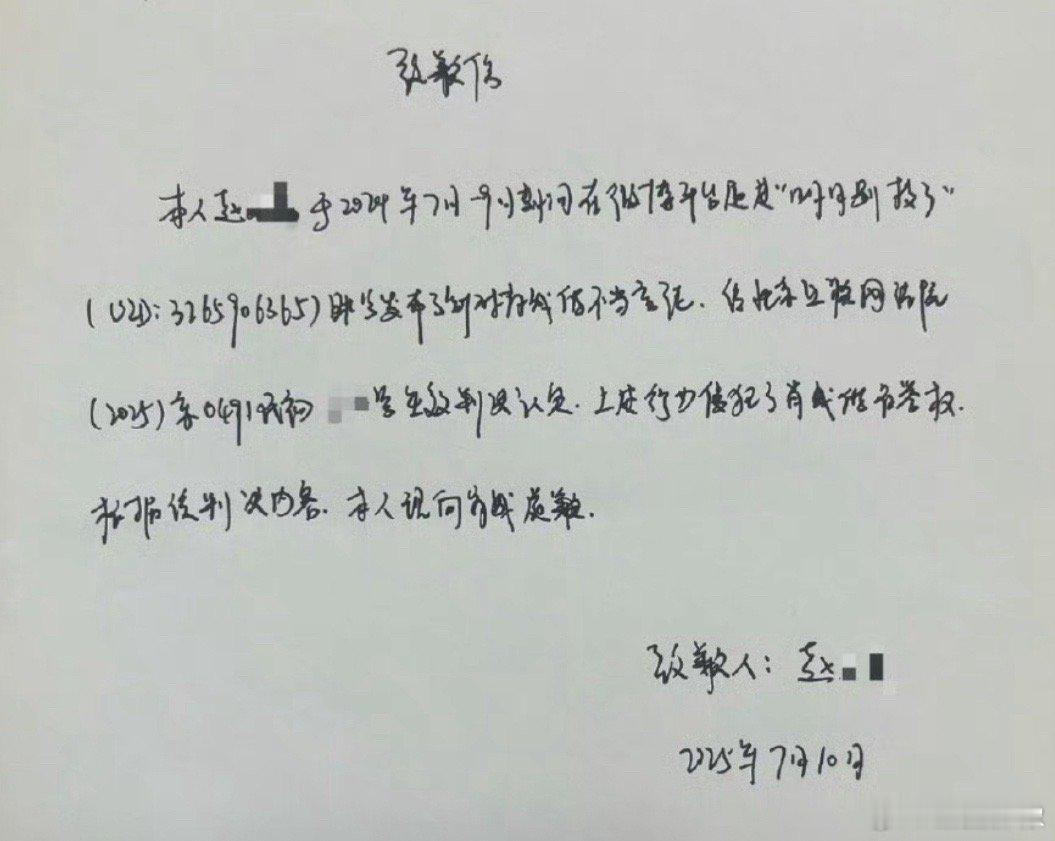 致歉信
本人赵 于2024年7月-9月期间在微博平台通过"
(UID:3265906365)账号发布了针对肖战的不当言论.经北京互联网法院
(2025)京0491民初 号生效判决认定.上述行为侵犯了肖战的名誉权.
根据该判决内容.本人现向肖战致歉.
致歉人:赵
2025年7月10日